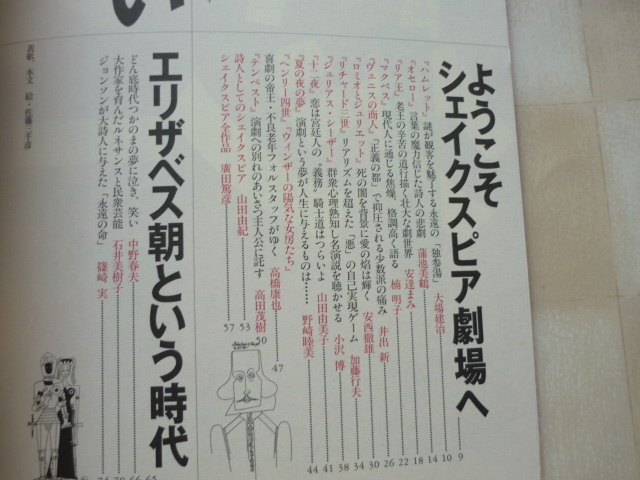 い
ようこそ
シェイクスピア劇場へ 9
『ハムレット』 謎が観客を魅了する永遠の「独参湯」 大場建治 10
『オセロー』 言葉の魔力信じた詩人の悲劇 蒲池美鶴 14
『リア王』 老王の辛苦の道行描く壮大な劇世界 安達まみ 18
『マクベス』 現代人に通じる焦燥、格調高く語る 楠 明子 22
『ヴェニスの商人』 「正義の都」で抑圧される少数派の痛み 井出 新 26
『ロミオとジュリエット』 死の闇を背景に愛の焰は輝く 安西徹雄 30
『リチャード三世』 リアリズムを超えた「悪」の自己実現ゲーム 加藤行夫 34
『ジュリアス・シーザー』 群衆心理熟知し名演説を聴かせる 小沢 博 38
『十二夜』 恋は宮廷人の〝義務〟騎士道はつらいよ 山田由美子 41
『夏の夜の夢』 演劇という夢が人生に与えるものは…… 野崎睦美 44
『ヘンリー四世』『ウィンザーの陽気な女房たち』
喜劇の帝王・不良老年フォルスタッフがゆく 高橋康也 47
『テンペスト』 演劇への別れのあいさつ主人公に託す 高田茂樹 50
詩人としてのシェイクスピア 山田由紀 53
シェイクスピア全作品 廣田篤彦 57
エリザベス朝という時代 65
どん底時代つかのまの夢に泣き、笑い 中野春夫 66
大作家を育んだルネサンスと民衆芸能 石井美樹子 70
ジョンソンが大詩人に与えた「永遠の命」 篠崎 実 74
表紙、本文 絵・佐藤三千彦